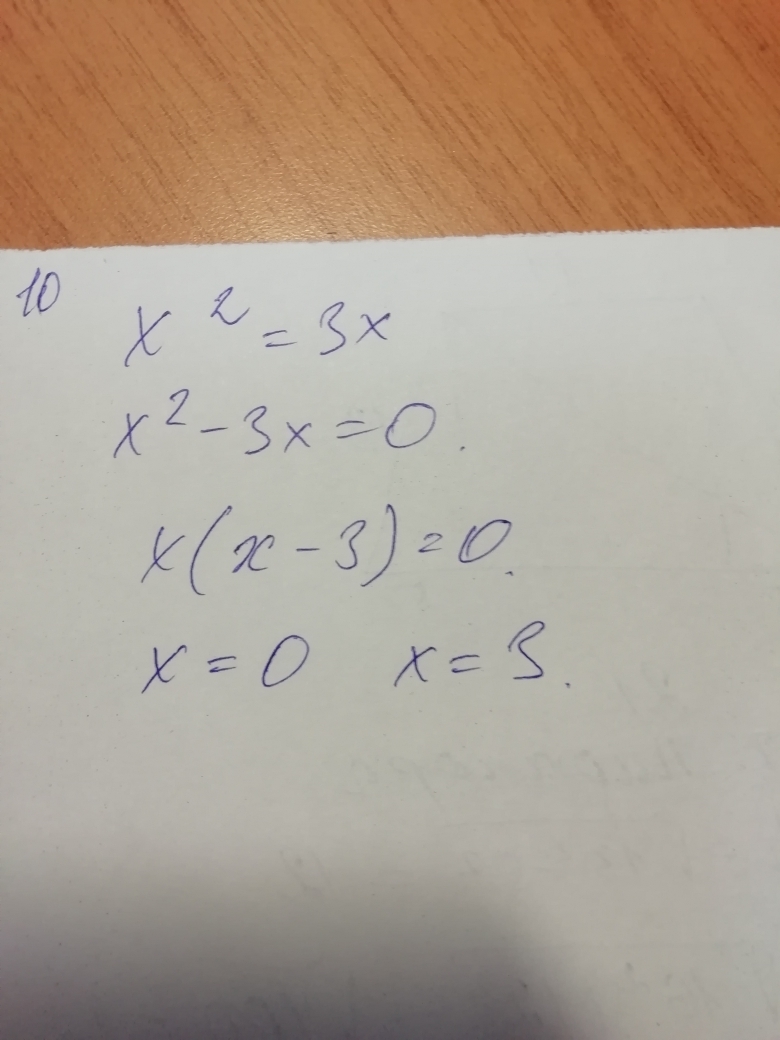 10
x² = 3x
x² - 3x = 0.
x(x - 3) = 0.
x = 0 x = 3.